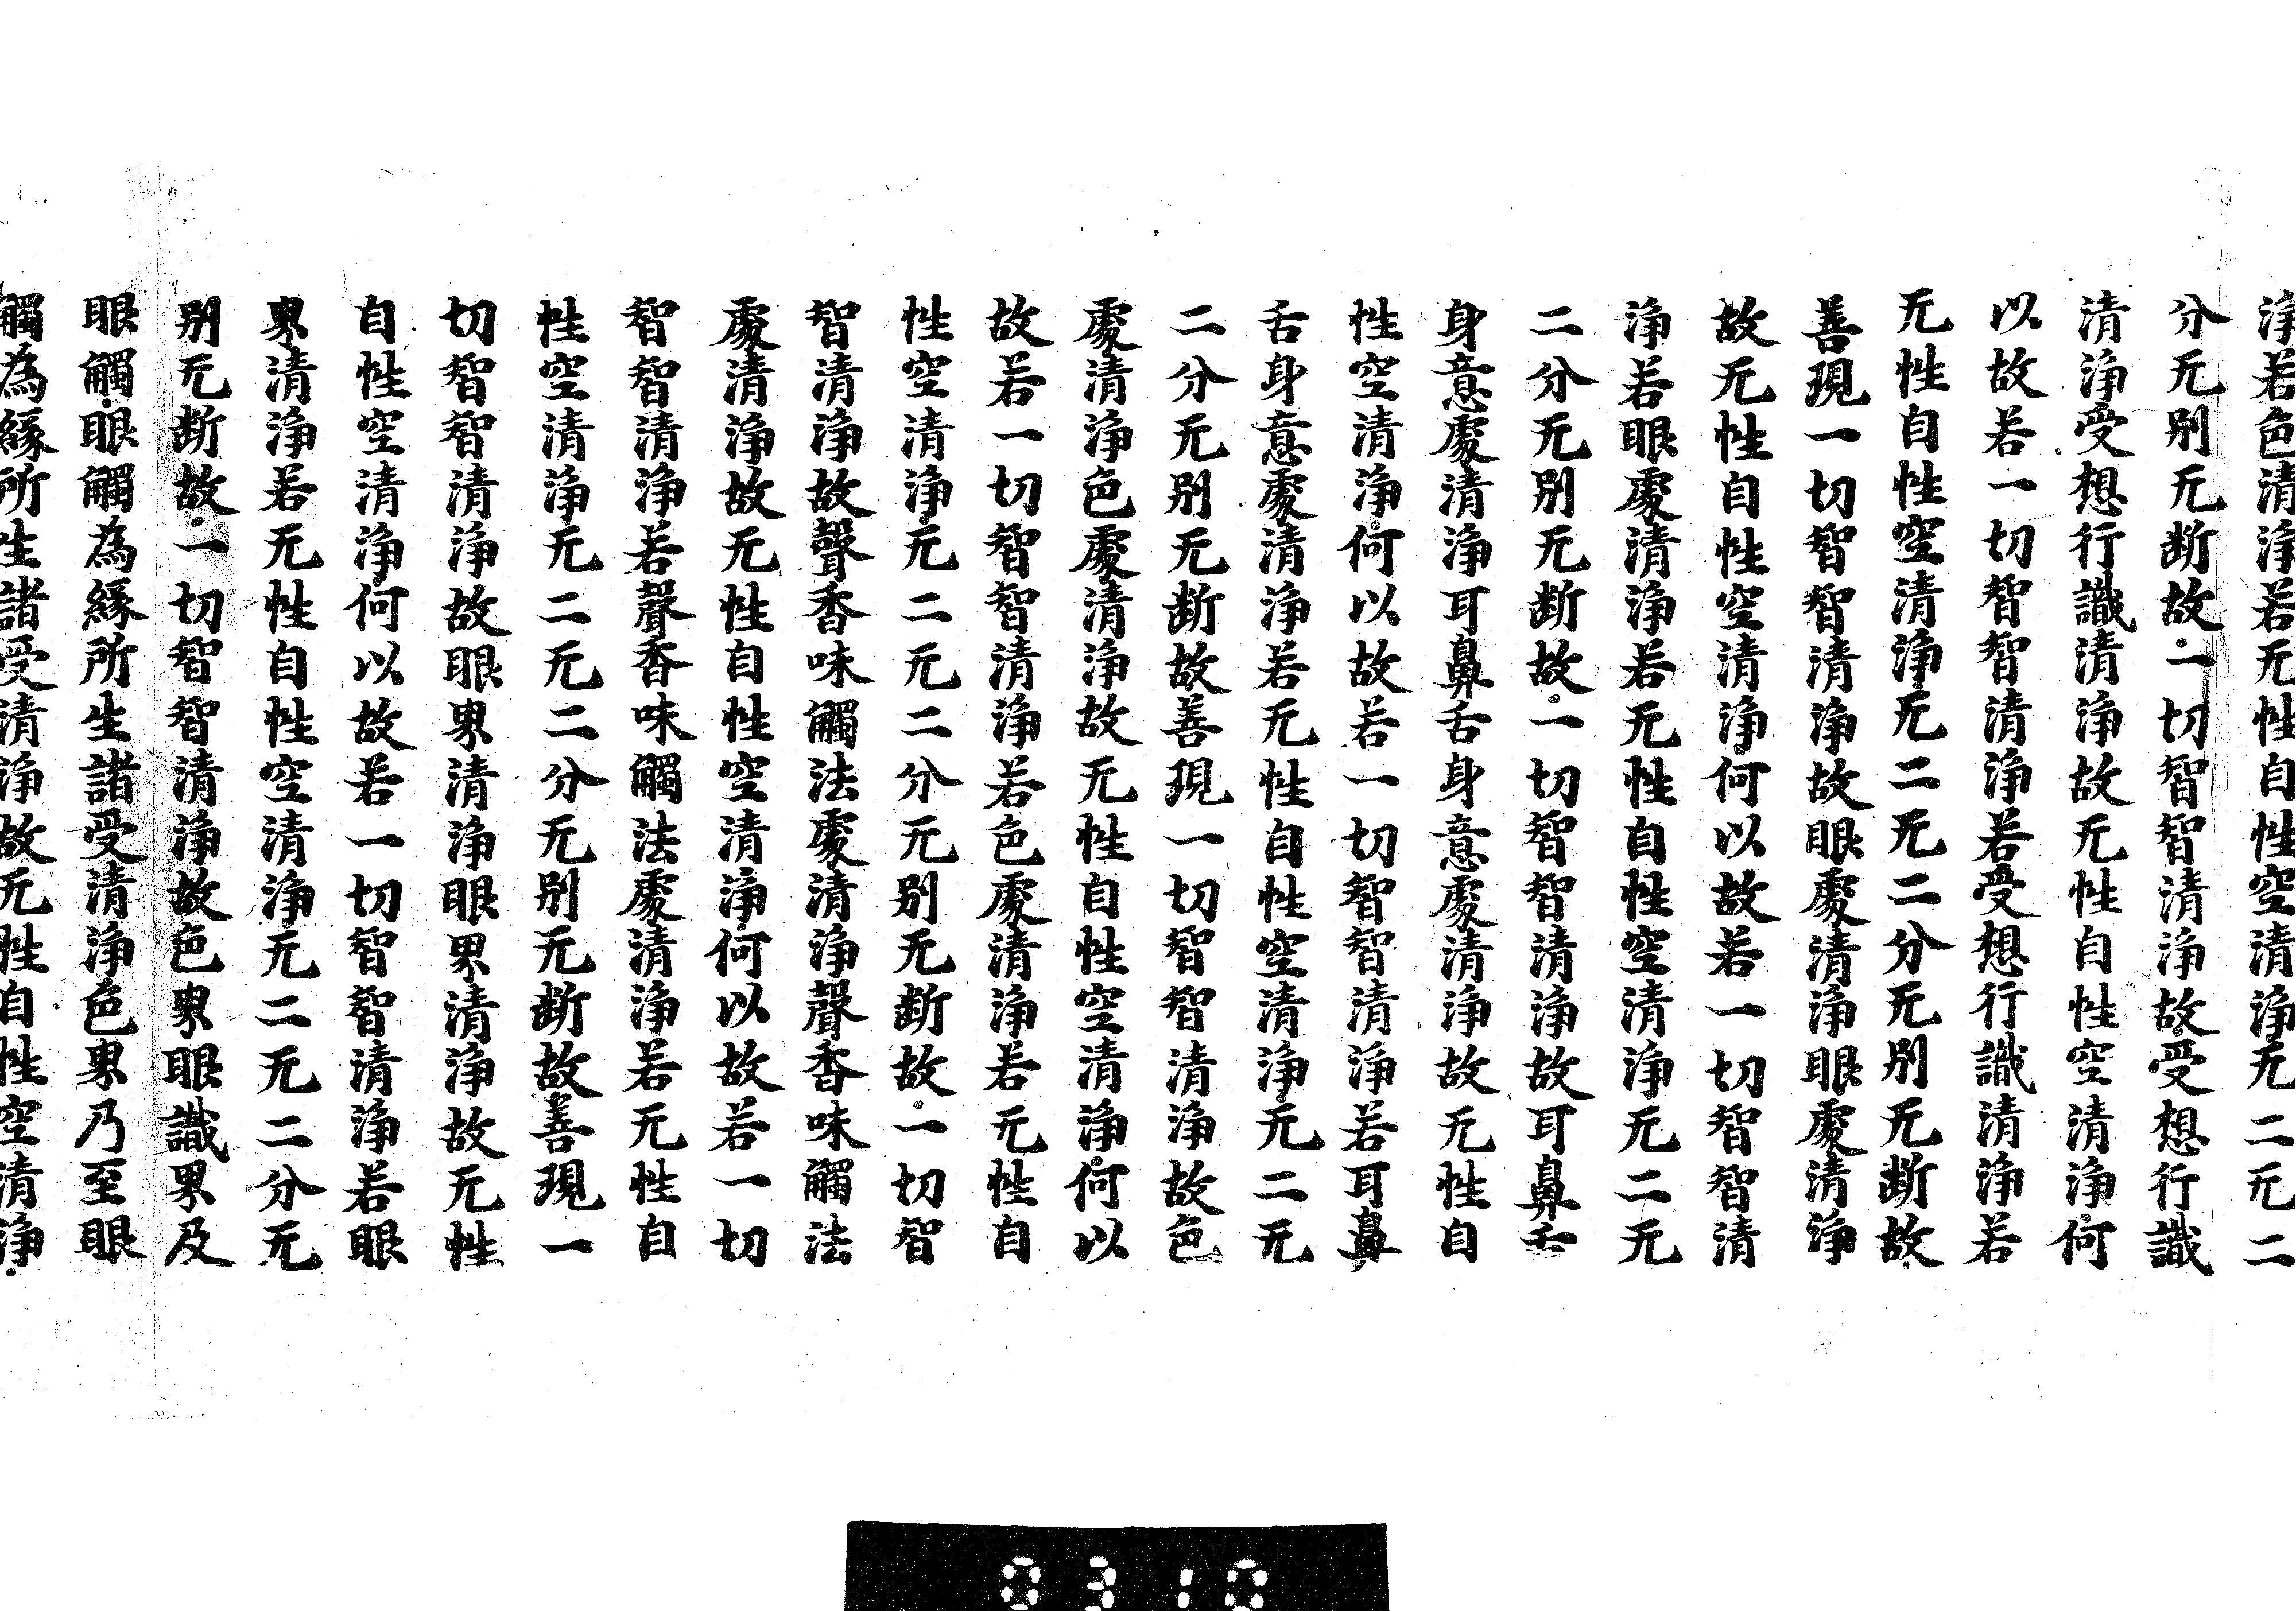 淨若色清淨若无性自性空清淨无二无二
分无別无断故一切智智清淨故受想行識
清淨受想行識清淨故无性自性空清淨何
以故若一切智智清淨若受想行識清淨若
无性自性空清淨无二无二分无別无断故
善現一切智智清淨故眼處清淨眼處清淨
故无性自性空清淨何以故若一切智智清
淨若眼處清淨若无性自性空清淨无二无
二分无別无断故一切智智清淨故耳鼻舌
身意處清淨耳鼻舌身意處清淨故无性自
性空清淨何以故若一切智智清淨若耳鼻
舌身意處清淨若无性自性空清淨无二无
二分无別无断故善現一切智智清淨故色
處清淨色處清淨故无性自性空清淨何以
故若一切智智清淨若色處清淨若无性自
性空清淨无二无二分无別无断故一切智
智清淨故聲香味觸法處清淨聲香味觸法
處清淨故无性自性空清淨何以故若一切
智智清淨若聲香味觸法處清淨若无性自
性空清淨无二无二分无別无断故善現一
切智智清淨故眼界清淨眼界清淨故无性
自性空清淨何以故若一切智智清淨若眼
界清淨若无性自性空清淨无二无二分无
別无断故一切智智清淨故色界眼識界及
眼觸眼觸為緣所生諸受清淨色界乃至眼
觸為緣所生諸受清淨故无性自性空清淨
0310